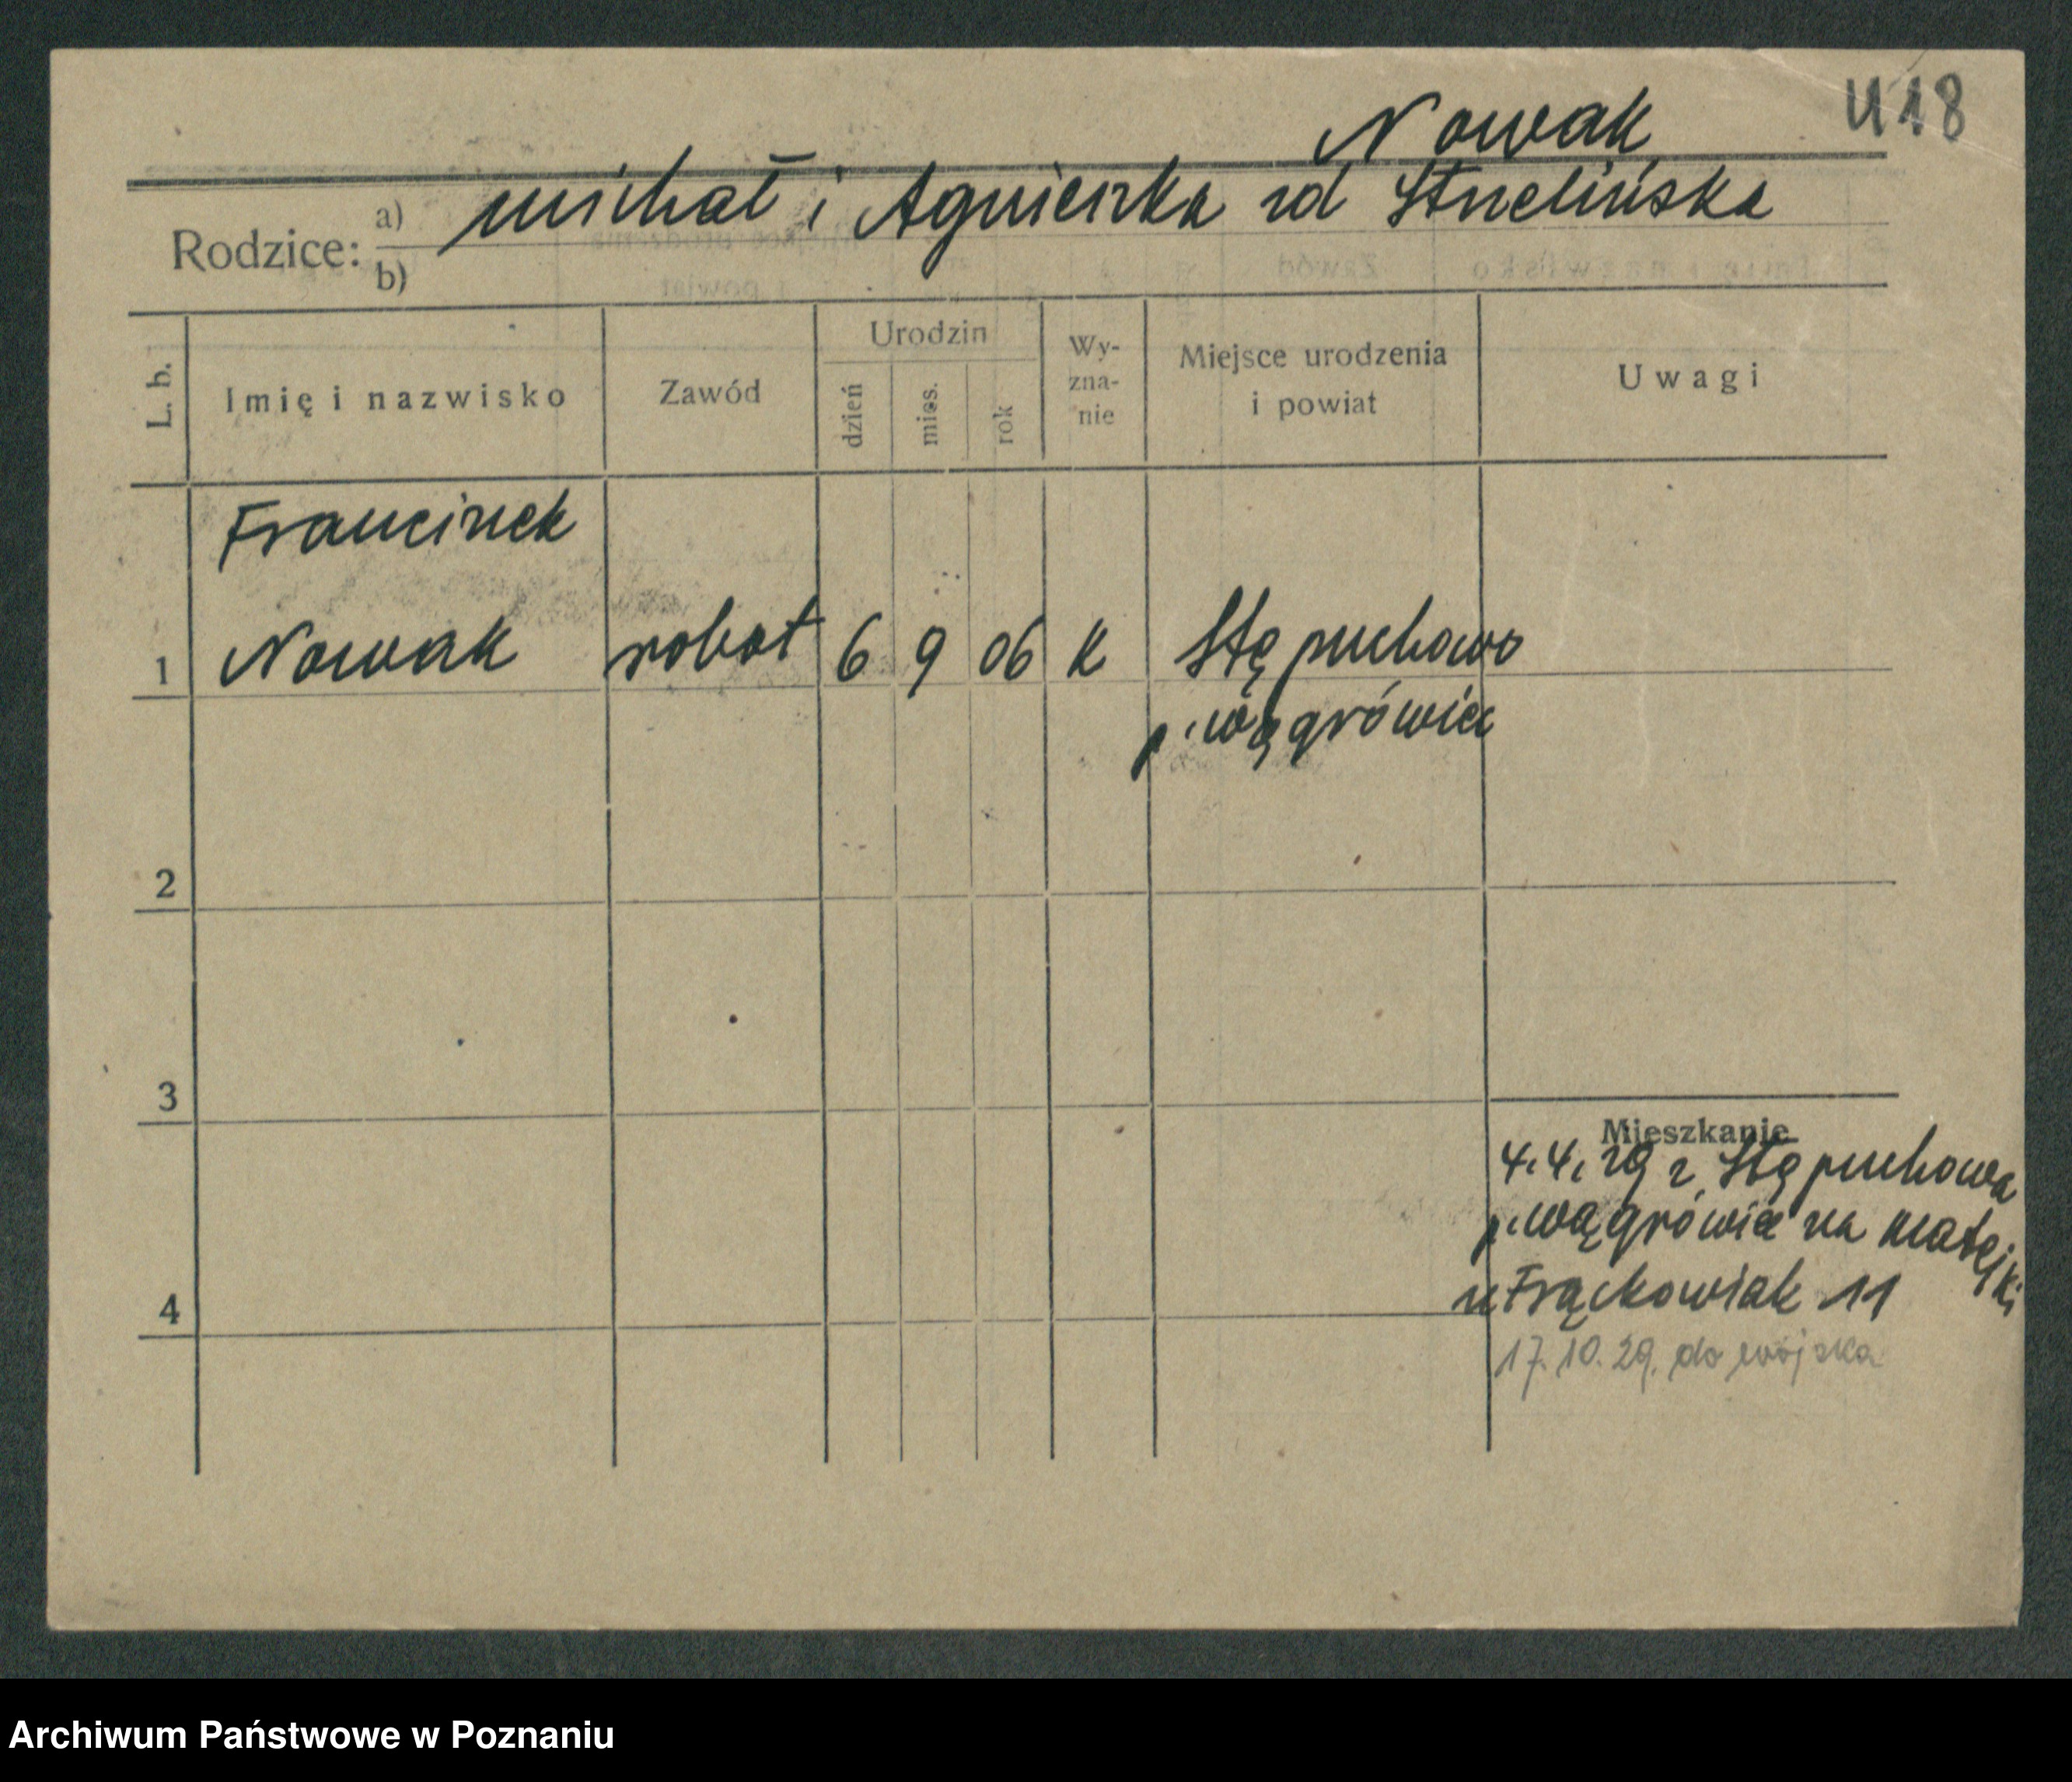 418
Nowak
Rodzice: a) Michał i Agnieszka zd Strzelińska
b)
L. b.
Imię i nazwisko
Zawód
Urodzin
dzień
mies.
rok
Wy-
zna-
nie
Miejsce urodzenia
i powiat
Uwagi
Franciszek
1 Nowak robot 6 9 06 k Stępuchowo
p. Wągrówiec
2
3
Mieszkanie
4.4.29 z Stępuchowa
p. Wągrówiec na Matejki
4 u Frąckowiak 11
17.10.29. do wojska
Archiwum Państwowe w Poznaniu